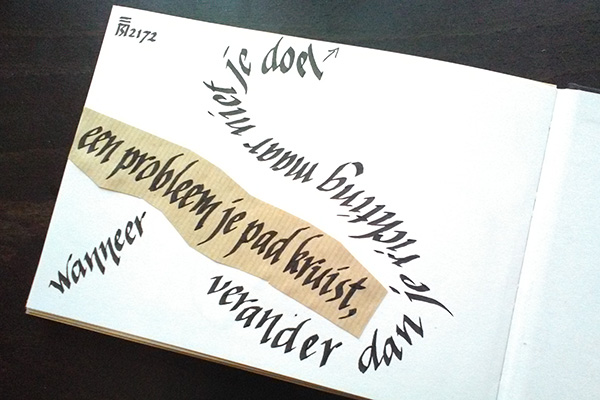 BM2172
wanneer
een probleem je pad kruist,
verander dan je richting maar niet je doel